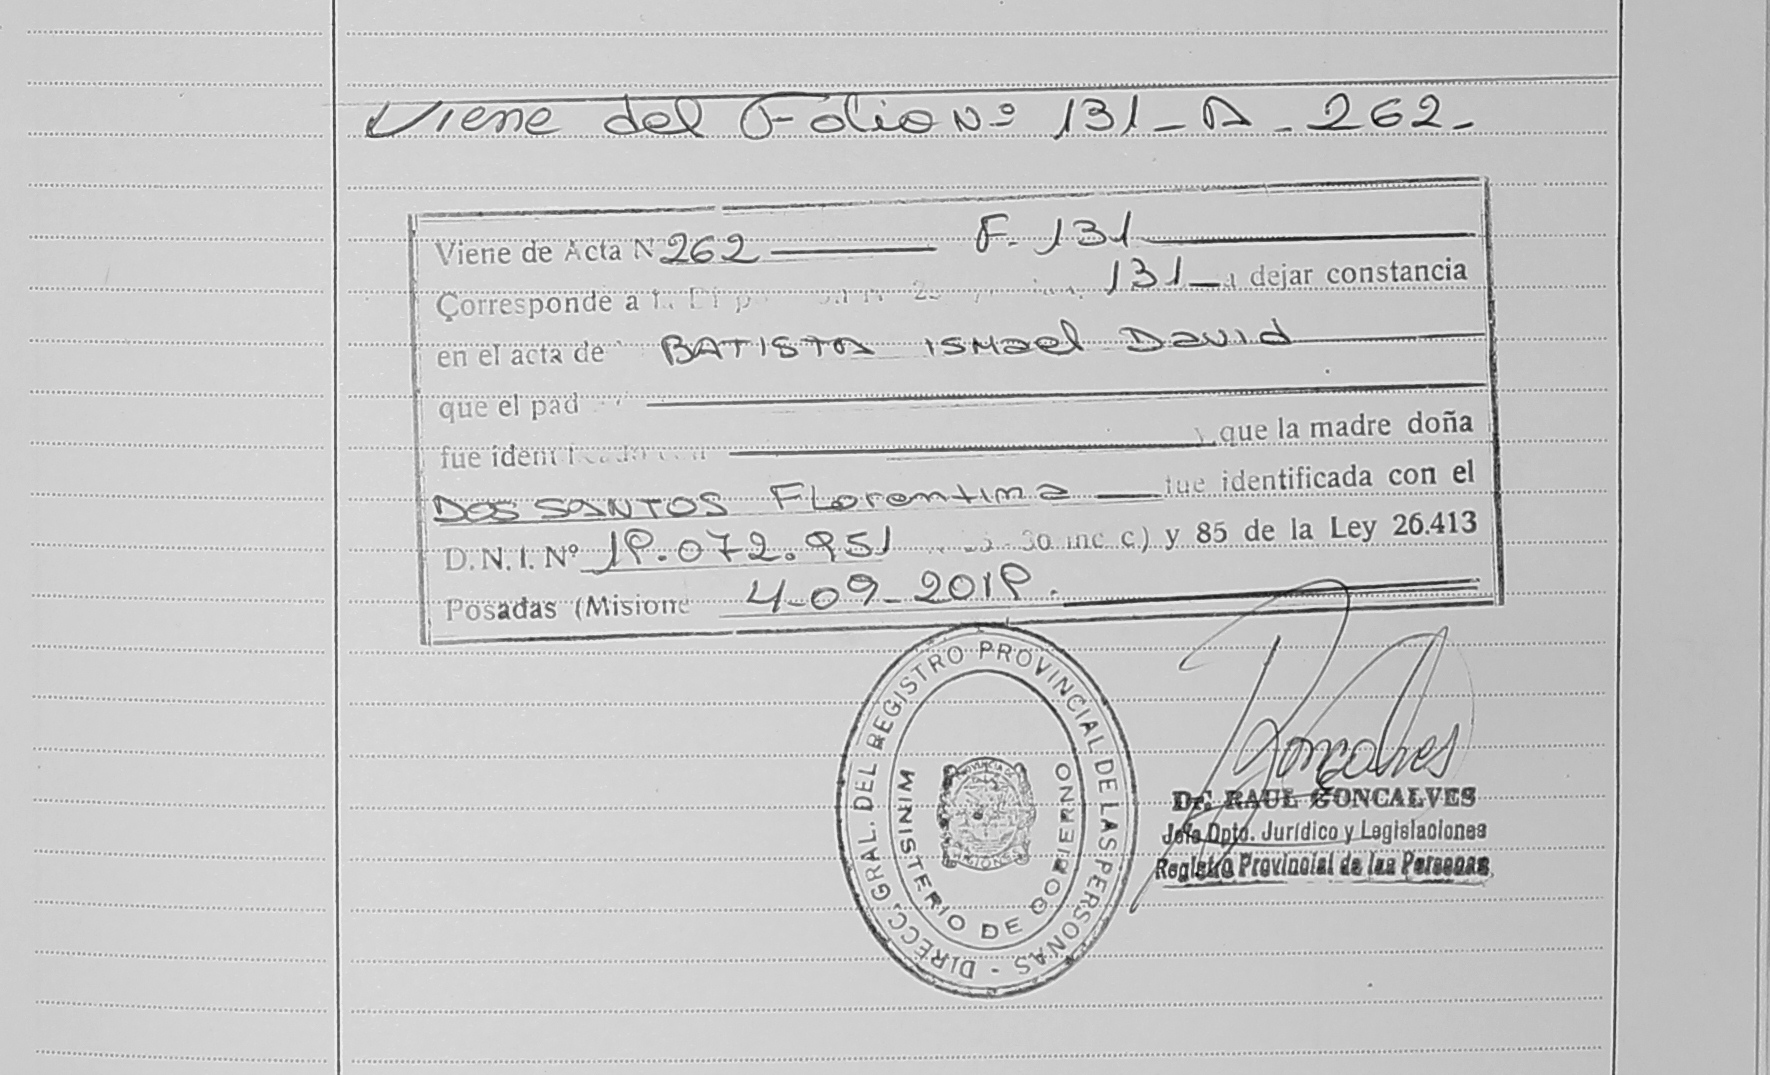 Viene del Folio Nº 131_A_262_
Viene de Acta N 262 F. 131
Corresponde a 131 a dejar constancia
en el acta de BATISTA ISMael DavId
que el pad
fue identificado con y que la madre doña
DOS SANTOS FLorentina fue identificada con el
D.N.I. Nº 19.072.951 30 inc c) y 85 de la Ley 26.413
Posadas (Misione 4-09-2019.
DIRECC. GRAL. DEL REGISTRO PROVINCIAL DE LAS PERSONAS -
MINISTERIO DE GOBIERNO
PROVINCIA DE
MISIONES
Goncalves
Dr. RAUL GONCALVES
Jefe Dpto. Jurídico y Legislaciones
Registro Provincial de las Personas